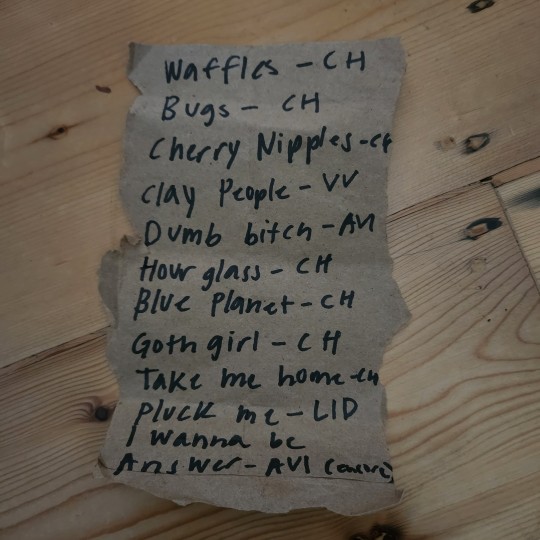 Waffles - CH
Bugs - CH
Cherry Nipples - CH
Clay People - VV
Dumb bitch - AVI
Hour glass - CH
Blue Planet - CH
Goth girl - CH
Take me home - CH
Pluck me - LID
I wanna be
Answer - AVI